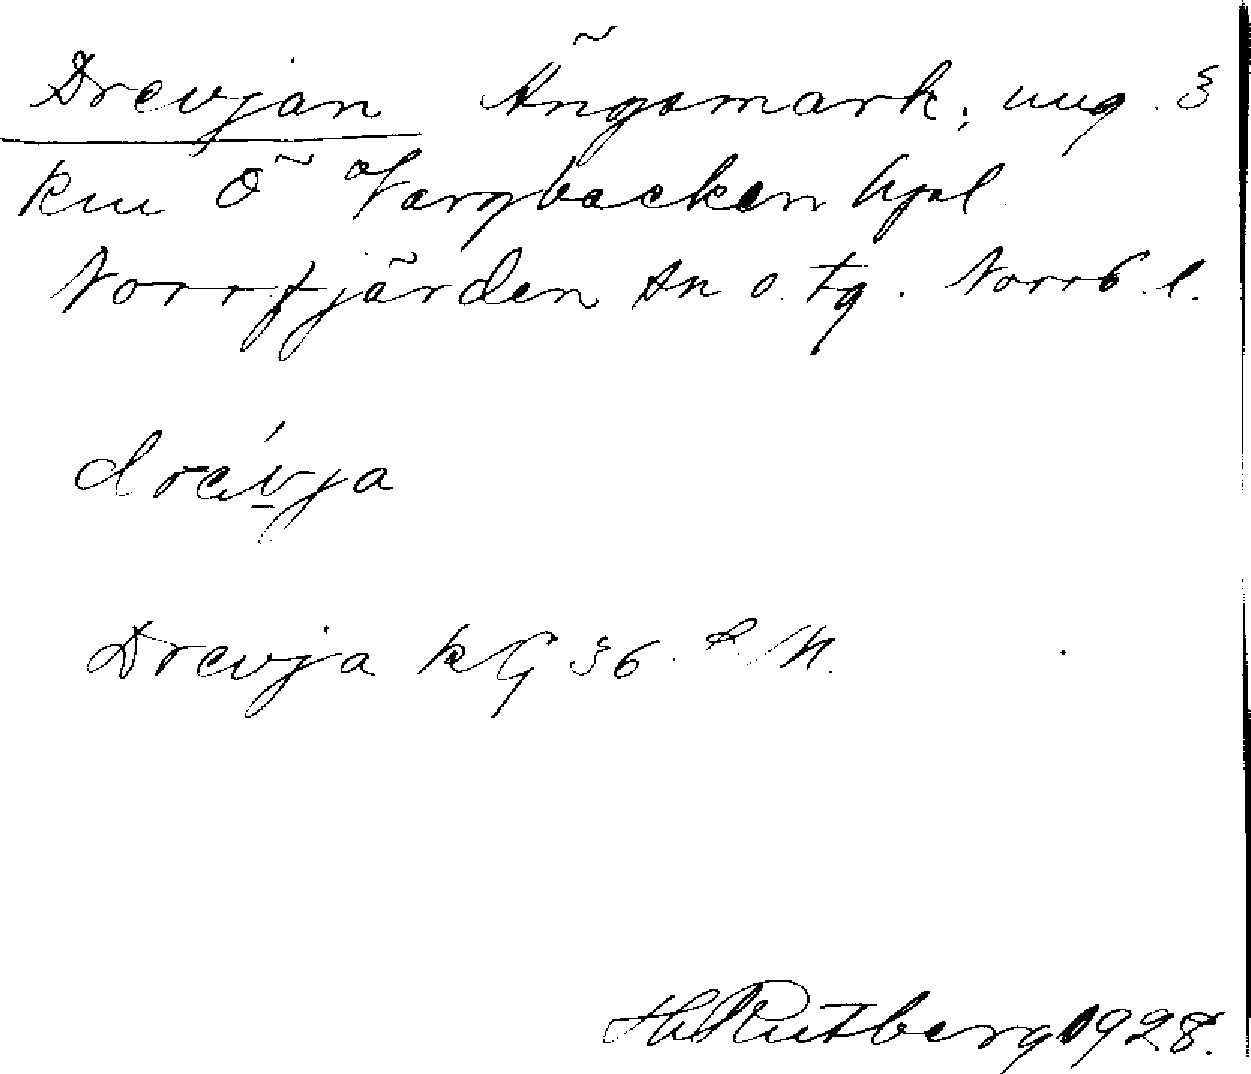 Drevjan Ängsmark, ung. 3
km Ö Vargbacken hpl
Norrfjärden sn o. tg. Norrb. l.
drevja
Drevja kG 36.
H Rutberg 1928.